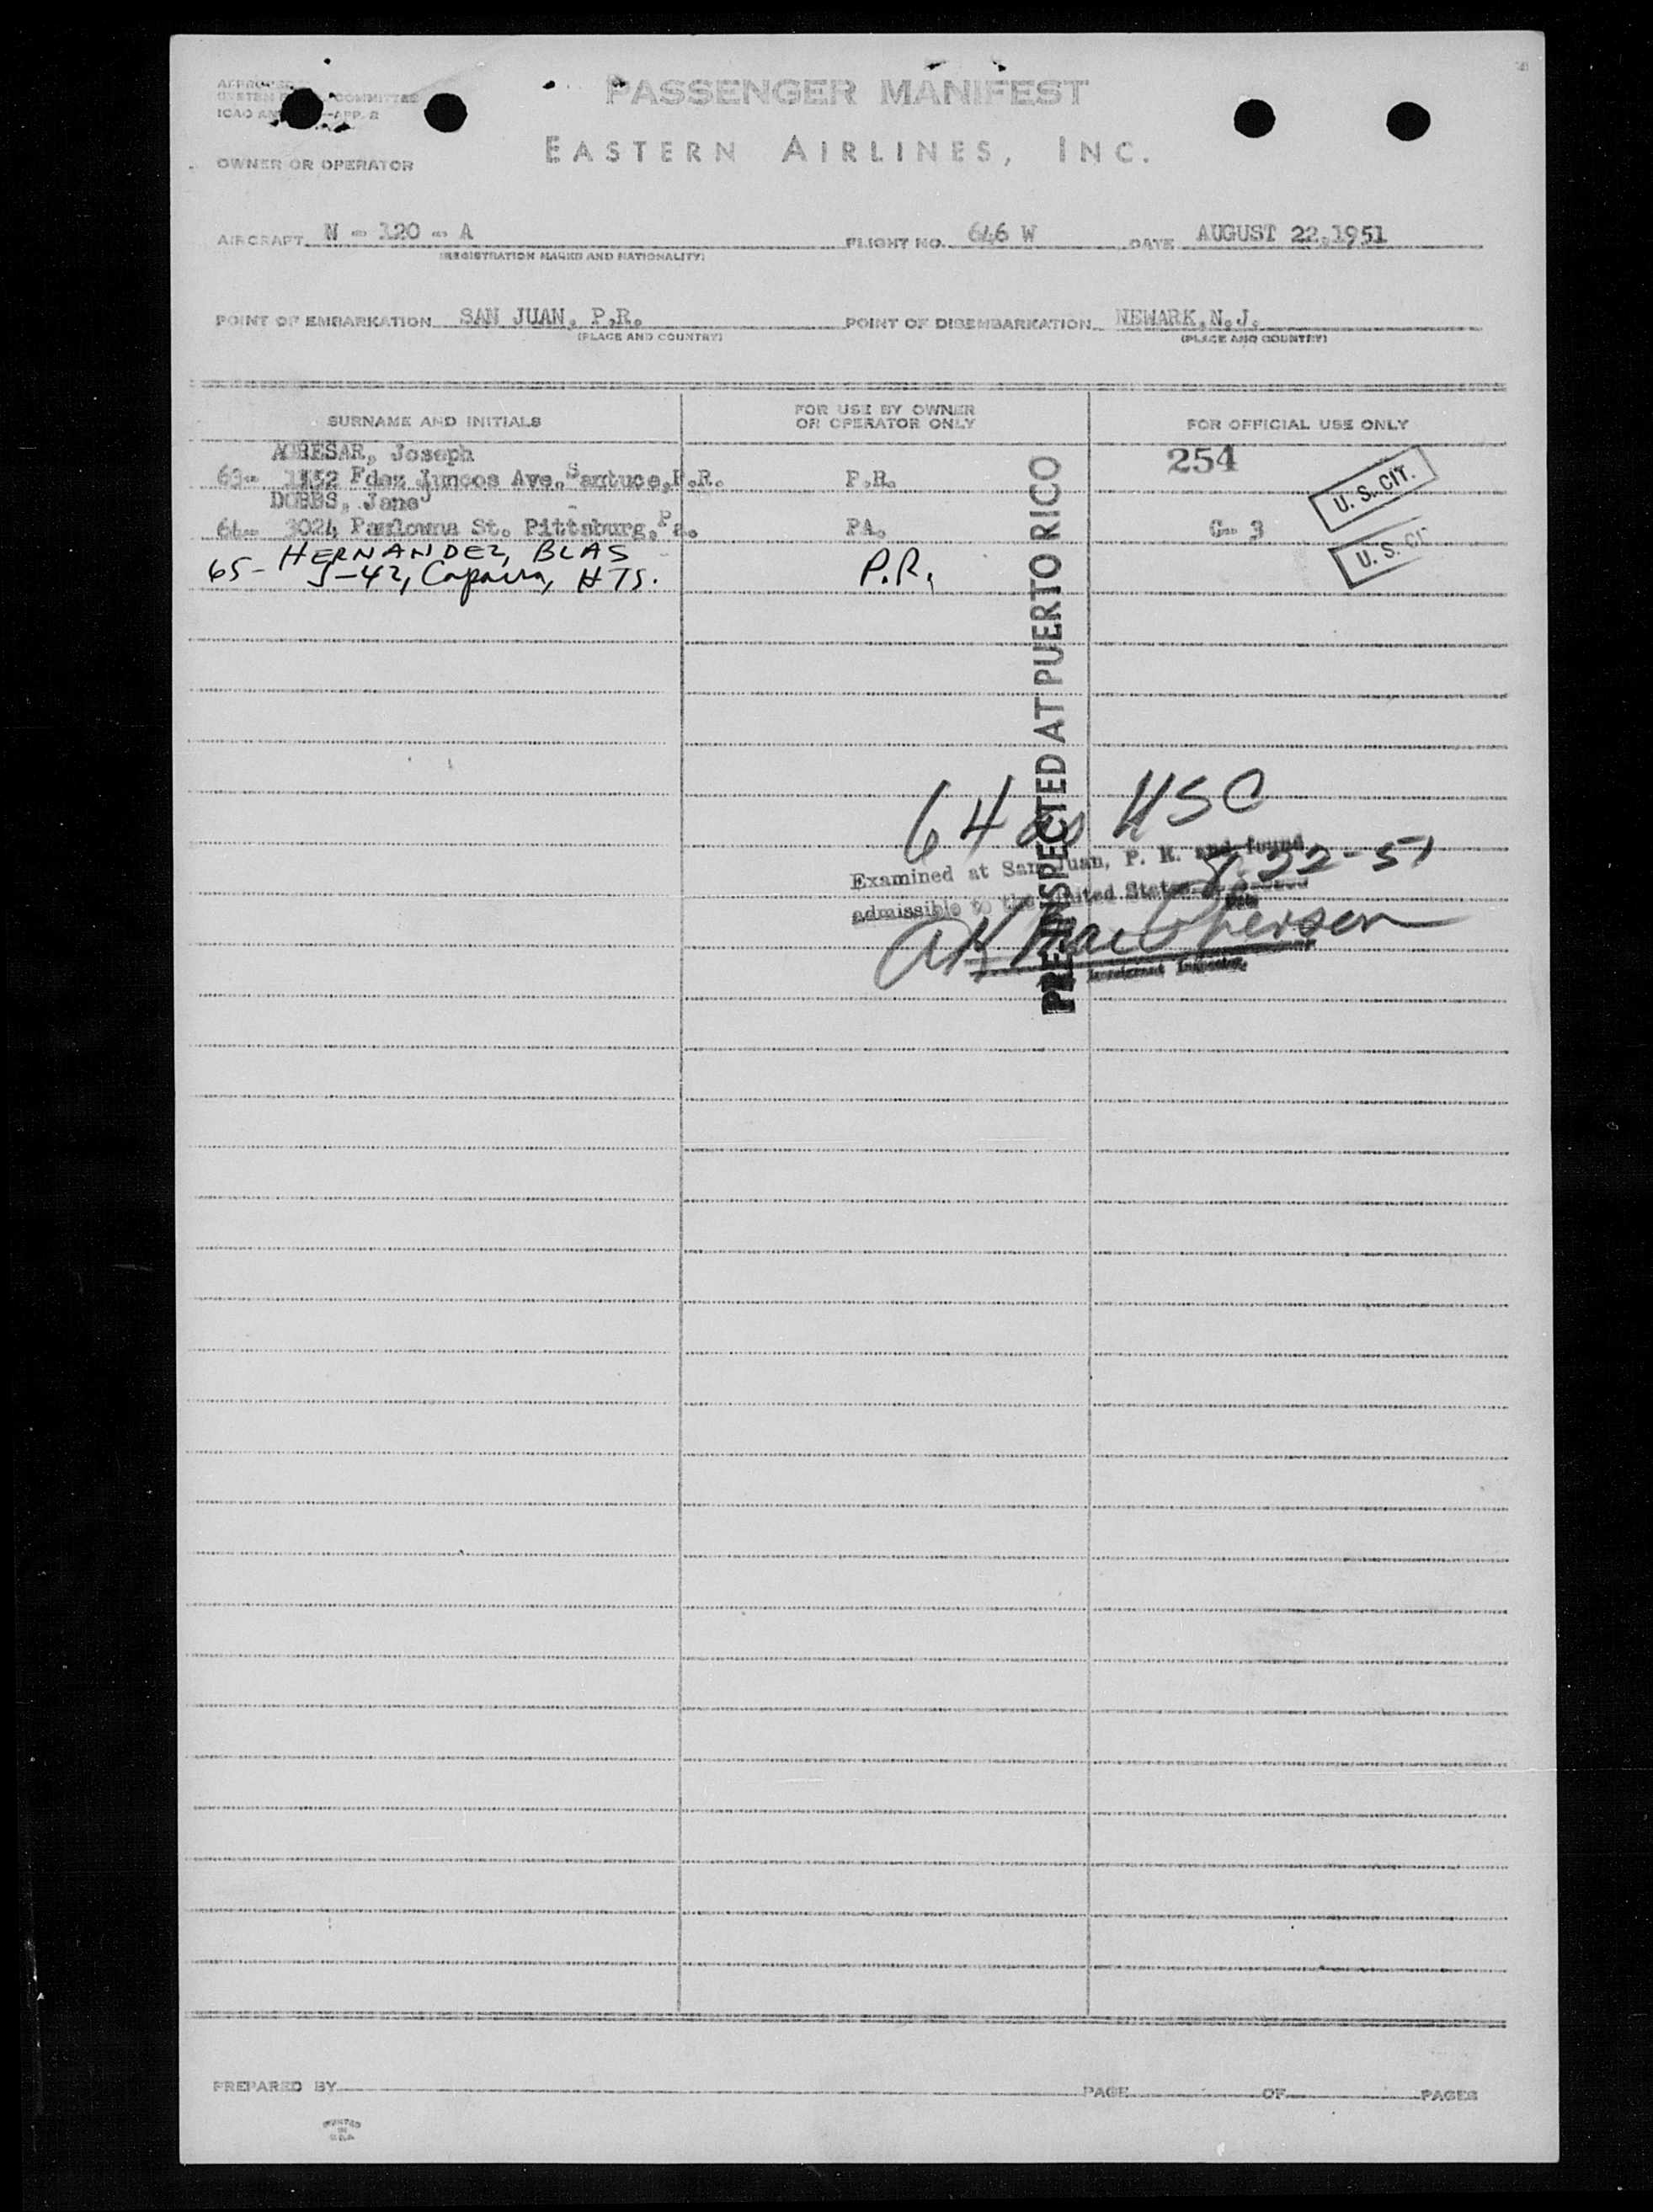 PASSENGER MANIFEST
COMMITTEE
APP. 2
EASTERN AIRLINES, INC.
OWNER OR OPERATOR
AIRCRAFT N - 120 - A FLIGHT NO. 646 W DATE AUGUST 22,1951
(REGISTRATION MARKS AND NATIONALITY)
POINT OF EMBARKATION SAN JUAN, P.R. POINT OF DISEMBARKATION NEWARK,N.J.
(PLACE AND COUNTRY) (PLACE AND COUNTRY)
SURNAME AND INITIALS FOR USE BY OWNER OR OPERATOR ONLY FOR OFFICIAL USE ONLY
Joseph 254
63- Fdez Juncos Ave. Santuce,P.R. P.R. U. S. CIT.
DOBBS, Jane
64- 3024 St. Pittsburg,Pa. PA. G- 3 U. S. CIT
HERNANDEZ, BLAS
65- J-42, Caparra, HTS. P.R.
PRE-INSPECTED AT PUERTO RICO
64 as USC
Examined at San Juan, P. R. and found 8-22-51
admissible to the United States
Immigrant Inspector
PREPARED BY PAGE OF PAGES
PRINTED
IN
U.S.A.